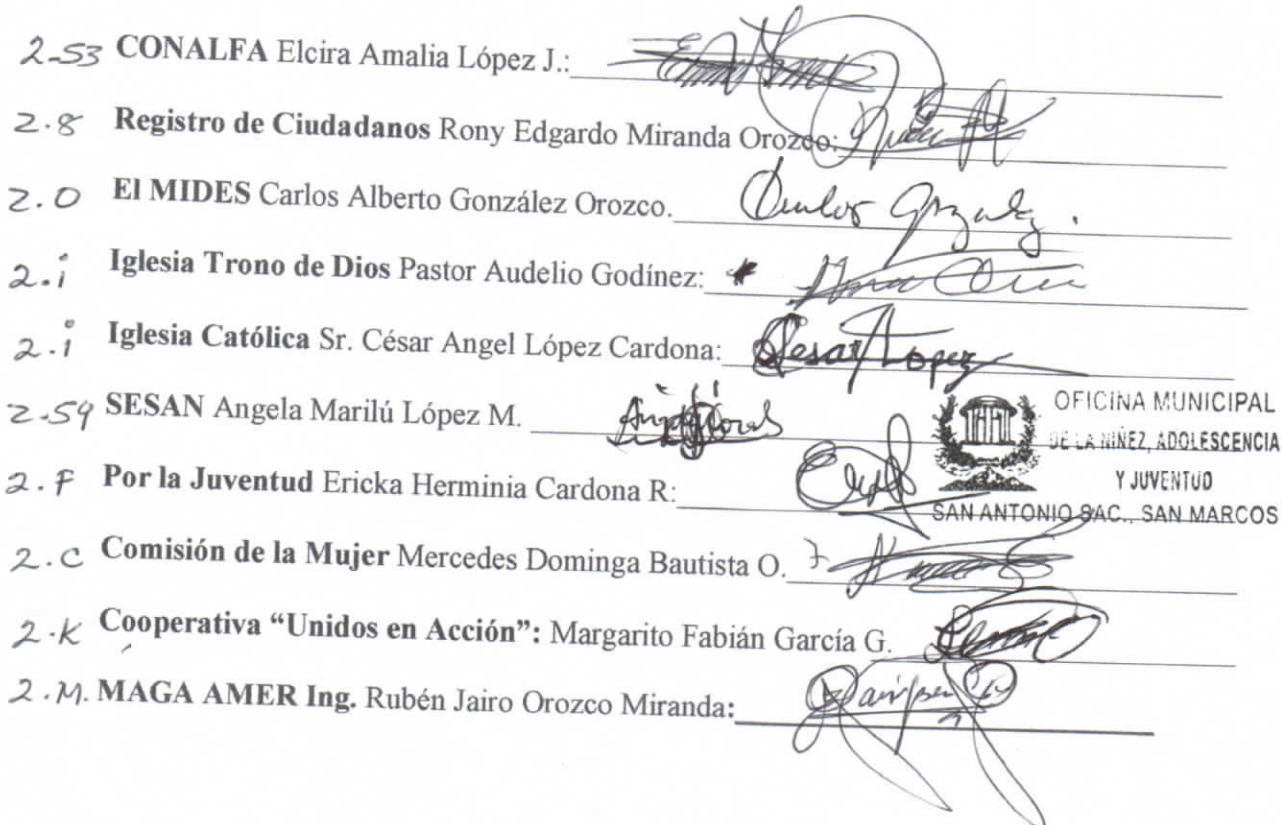 2-53 CONALFA Elcira Amalia López J.:
2.8 Registro de Ciudadanos Rony Edgardo Miranda Orozco:
2.0 El MIDES Carlos Alberto González Orozco.
2.i Iglesia Trono de Dios Pastor Audelio Godínez:
2.i Iglesia Católica Sr. César Angel López Cardona: Cesar Lopez
2-59 SESAN Angela Marilú López M.
OFICINA MUNICIPAL
DE LA NIÑEZ, ADOLESCENCIA
Y JUVENTUD
SAN ANTONIO SAC., SAN MARCOS
2.F Por la Juventud Ericka Herminia Cardona R:
2.C Comisión de la Mujer Mercedes Dominga Bautista O.
2.K Cooperativa “Unidos en Acción”: Margarito Fabián García G.
2.M. MAGA AMER Ing. Rubén Jairo Orozco Miranda: